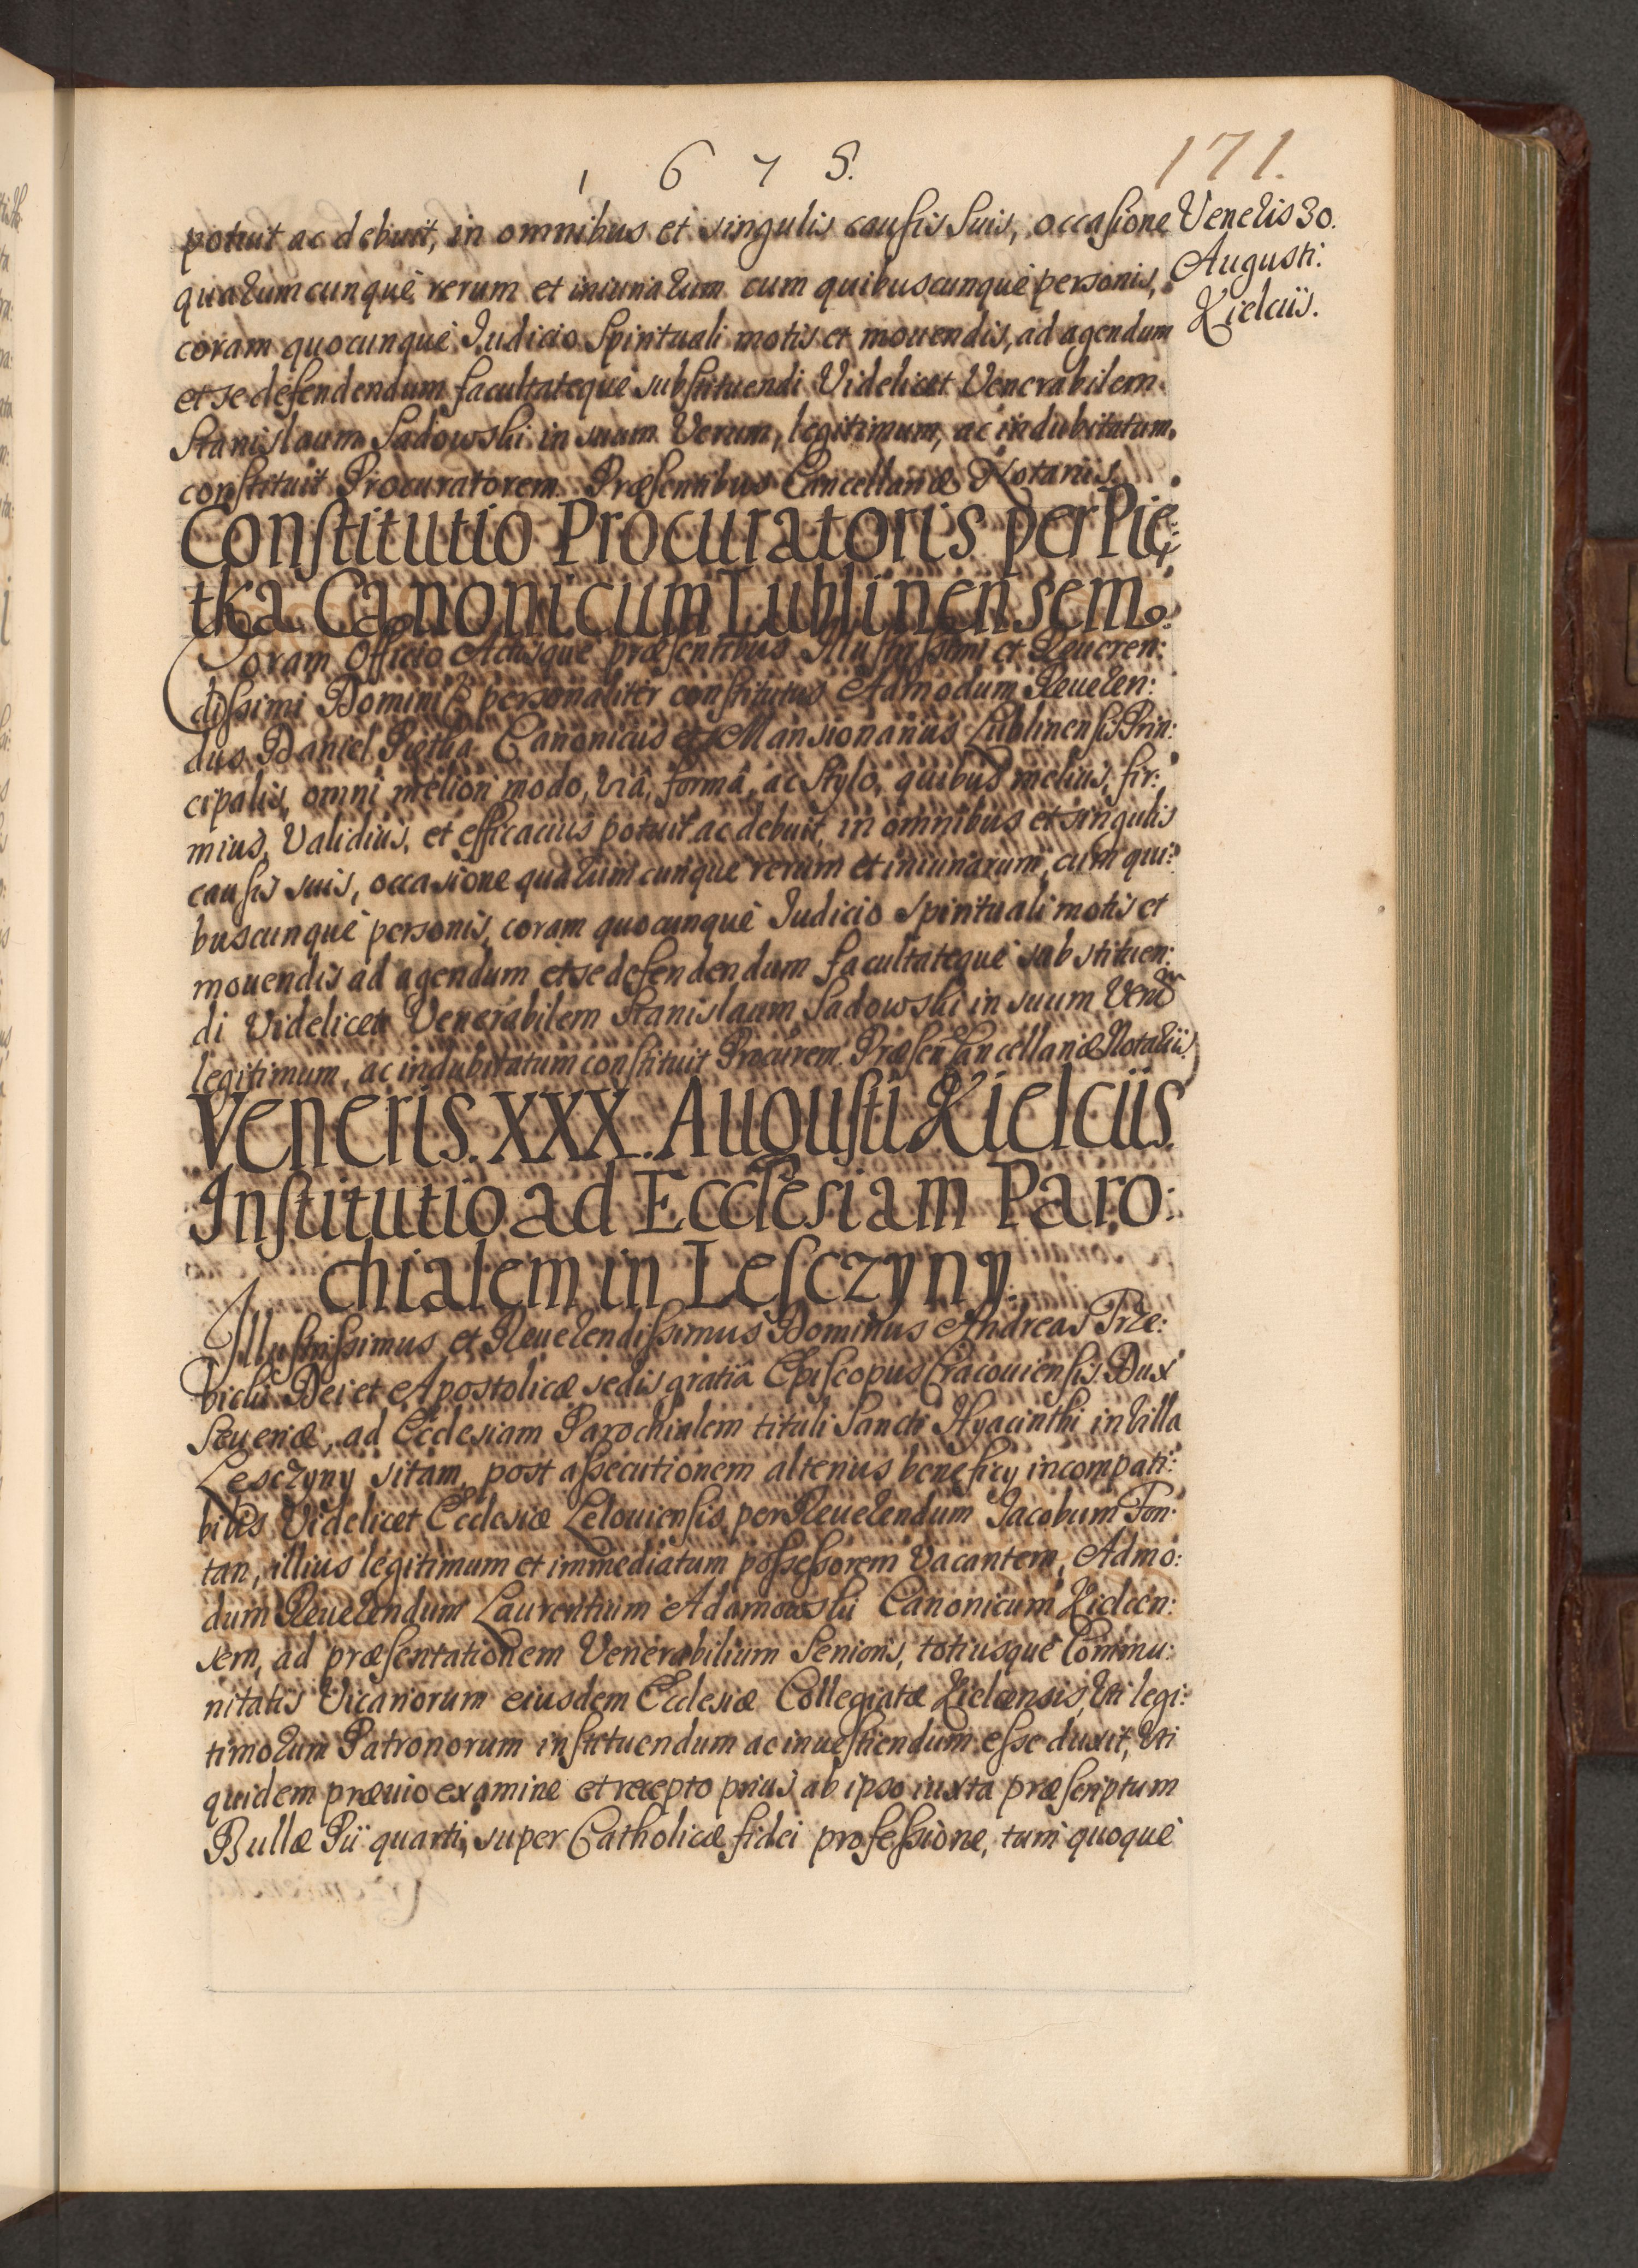 1675.
171.
potuit ac debuit, in omnibus et singulis causis suis, occasione
Veneris 30.
Augusti.
Kielciis.
quarumcunque rerum et iniuriarum cum quibuscunque personis,
coram quocunque Iudicio Spirituali motis et mouendis, ad agendum
et se defendendum facultateque substituendi Videlicet Venerabilem
Stanislaum Sadowski in suum Verum, legitimum, ac indubitatum
constituit Procuratorem. Præsentibus Cancellariæ Notariis.
Constitutio Procuratoris per Pię:
tka Canonicum Lublinensem.
Coram Officio Actisque præsentibus Illustrissimi et Reueren:
dissimi Domini personaliter constitutus Admodum Reueren:
dus Daniel Piętka Canonicus et Mansionarius Lublinensis Prin:
cipalis, omni meliori modo, viâ, formâ, ac stylo, quibus melius, fir:
mius, Validius, et efficacius potuit ac debuit, in omnibus et singulis
causis suis, occasione quarumcunque rerum et iniuriarum, cum qui:
buscunque personis, coram quocunque Iudicio Spirituali motis et
mouendis ad agendum et se defendendum facultateque substituen:
di Videlicet Venerabilem Stanislaum Sadowski in suum Verũ
legitimum, ac indubitatum constituit Procurem. Præsen Cancellariæ Notariis.
Veneris. XXX. Augusti Kielciis.
Institutio ad Ecclesiam Paro:
chialem in Lesczyny.
Illustrissimus et Reuerendissimus Dominus Andreas Trze:
bicki Dei et Apostolicæ sedis gratiâ Episcopus Cracouiensis Dux
Seueriæ, ad Ecclesiam Parochialem tituli Sancti Hyacinthi in Villa
Lesczyny sitam, post assecutionem alterius beneficij incompati:
bilis Videlicet Ecclesiæ Lelouiensis, per Reuerendum Iacobum Fon:
tan, illius legitimum et immediatum possessorem Vacantem, Admo:
dum Reuerendum Laurentium Adamowski Canonicum Kielcen:
sem, ad præsentationem Venerabilium Senioris, totiusque Commu:
nitatis Vicariorum eiusdem Ecclesiæ Collegiatæ Kielcensis, Vti legi:
timorum Patronorum instituendum ac inuestiendum esse duxit, Vti
quidem præuio examine et recepto prius ab ipso iuxta præscriptum
Bullæ Pii quarti, super Catholicæ fidei professione, tum quoque